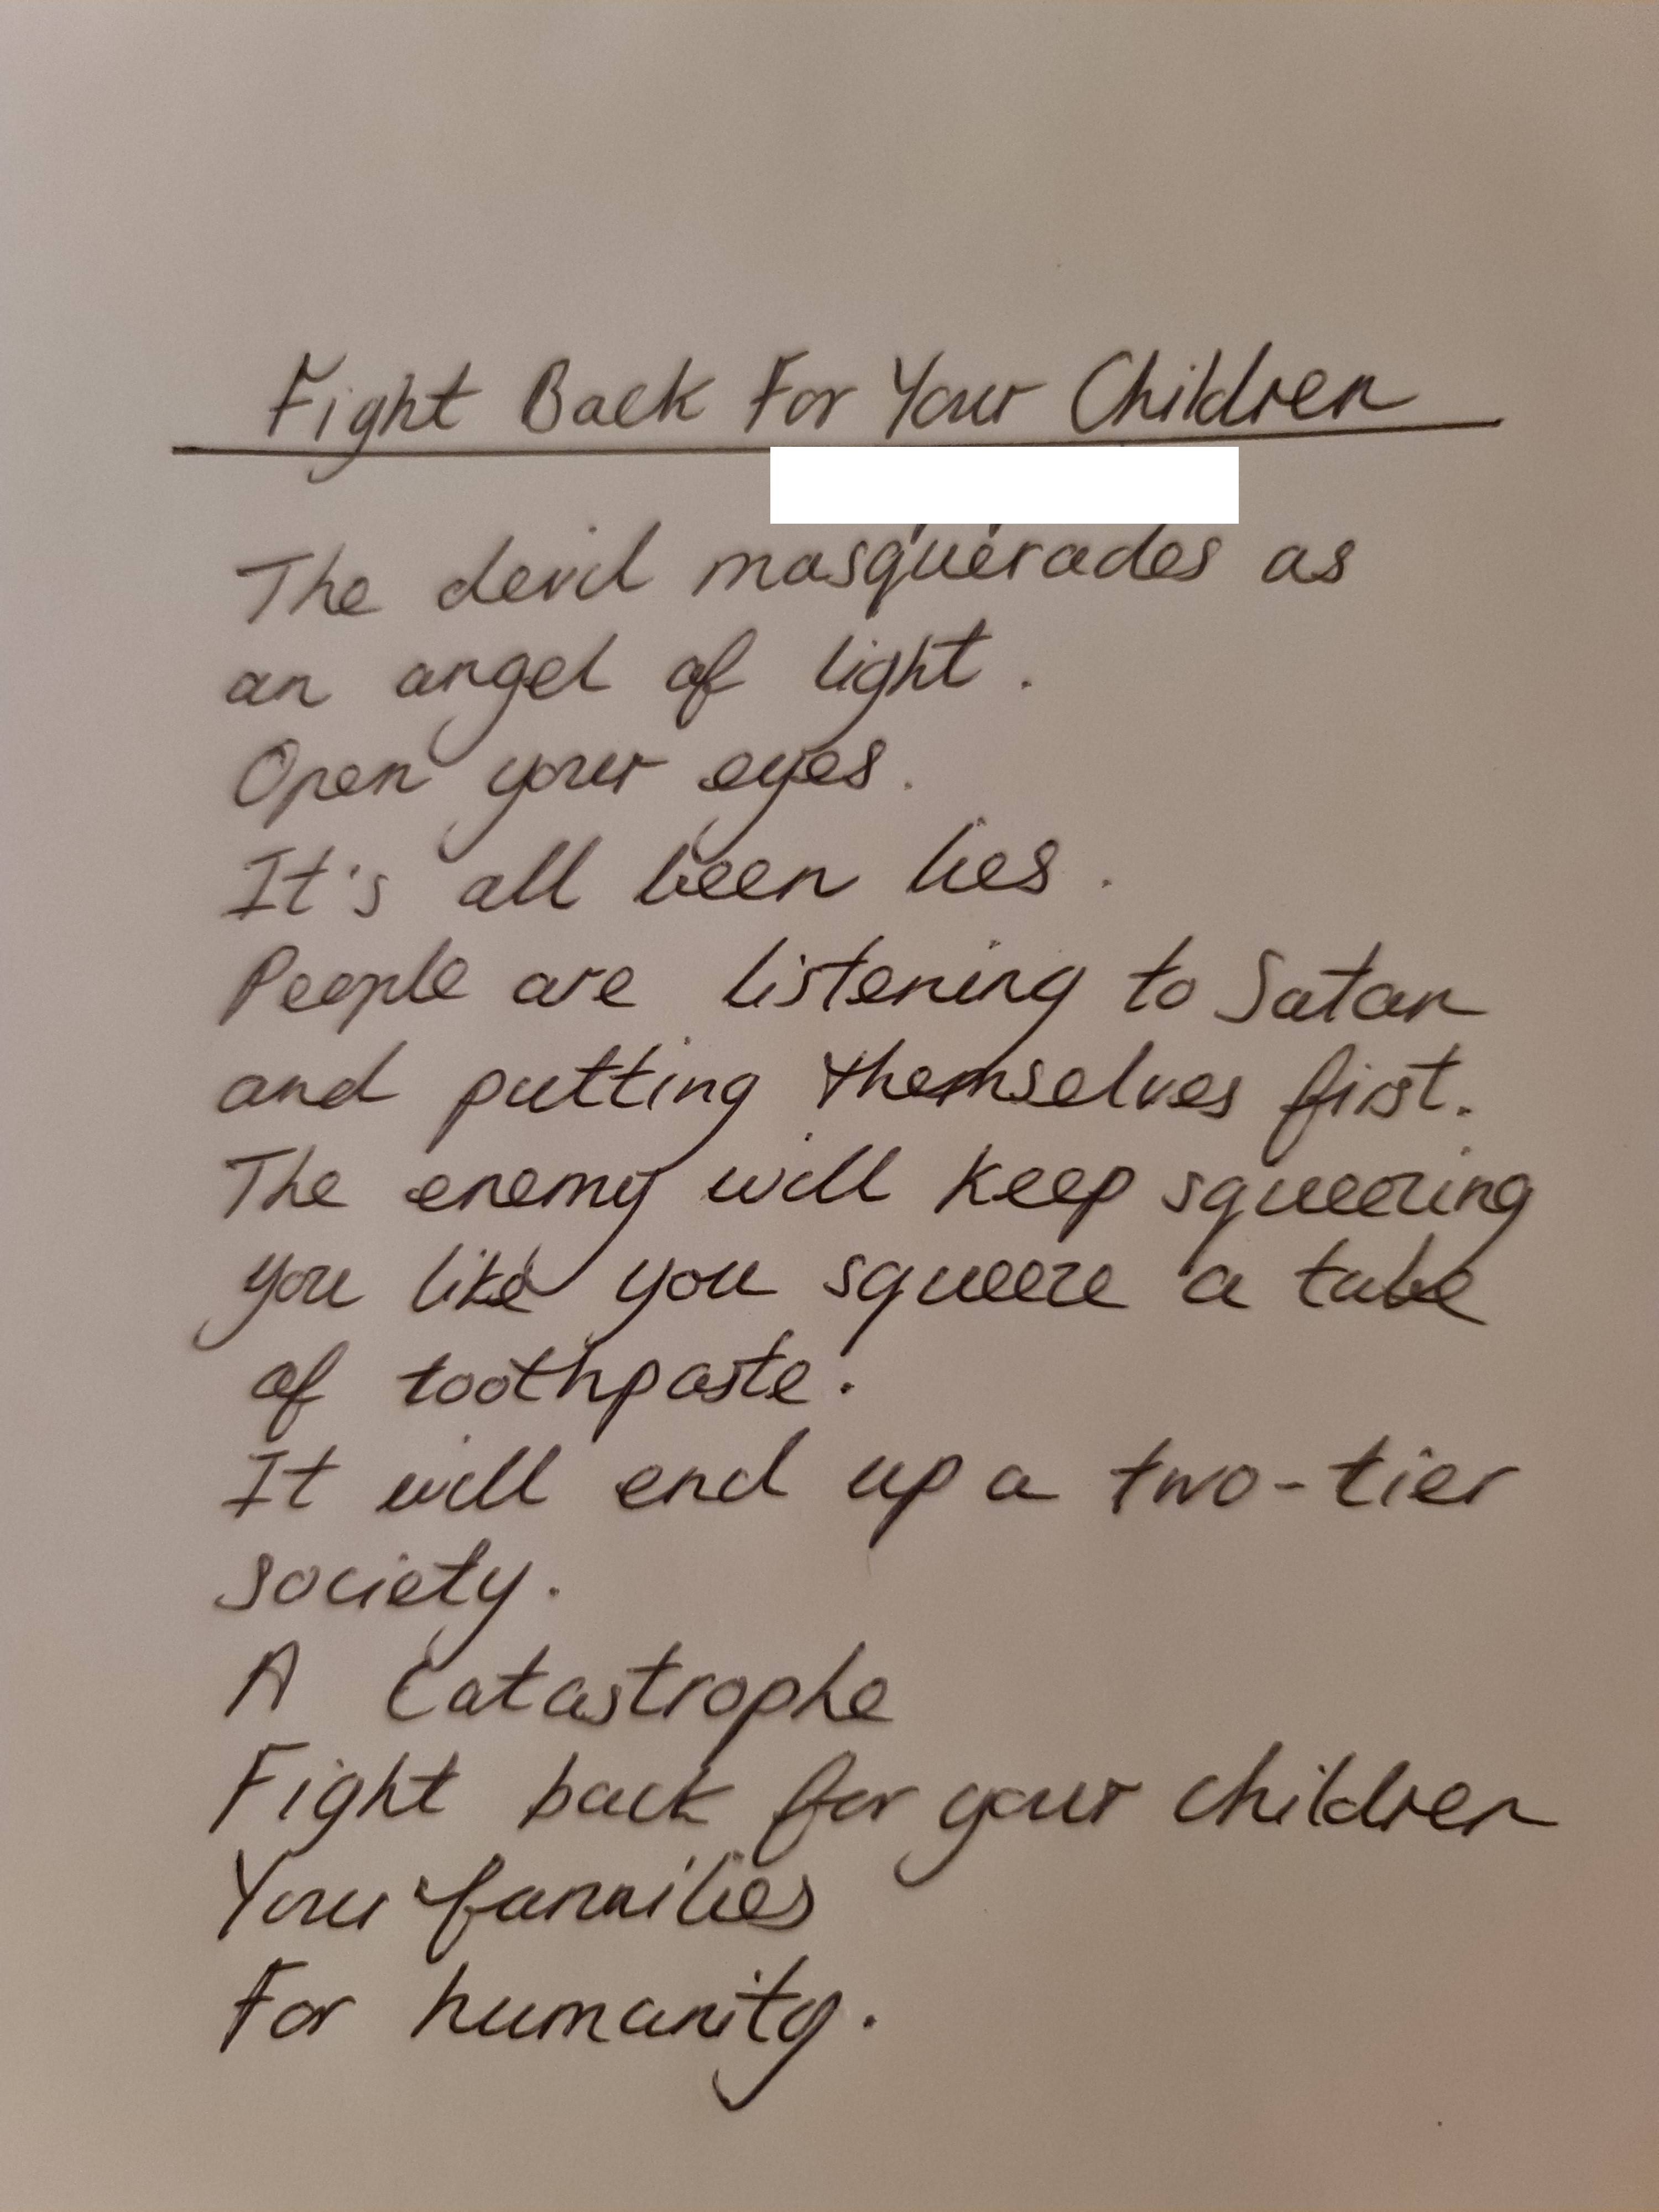 Fight Back For Your Children
The devil masquerades as
an angel of light.
Open your eyes.
It's all been lies.
People are listening to Satan
and putting themselves first.
The enemy will keep squeezing
you like you squeeze a tube
of toothpaste.
It will end up a two-tier
society.
A Catastrophe
Fight back for your children
Your families
For humanity.